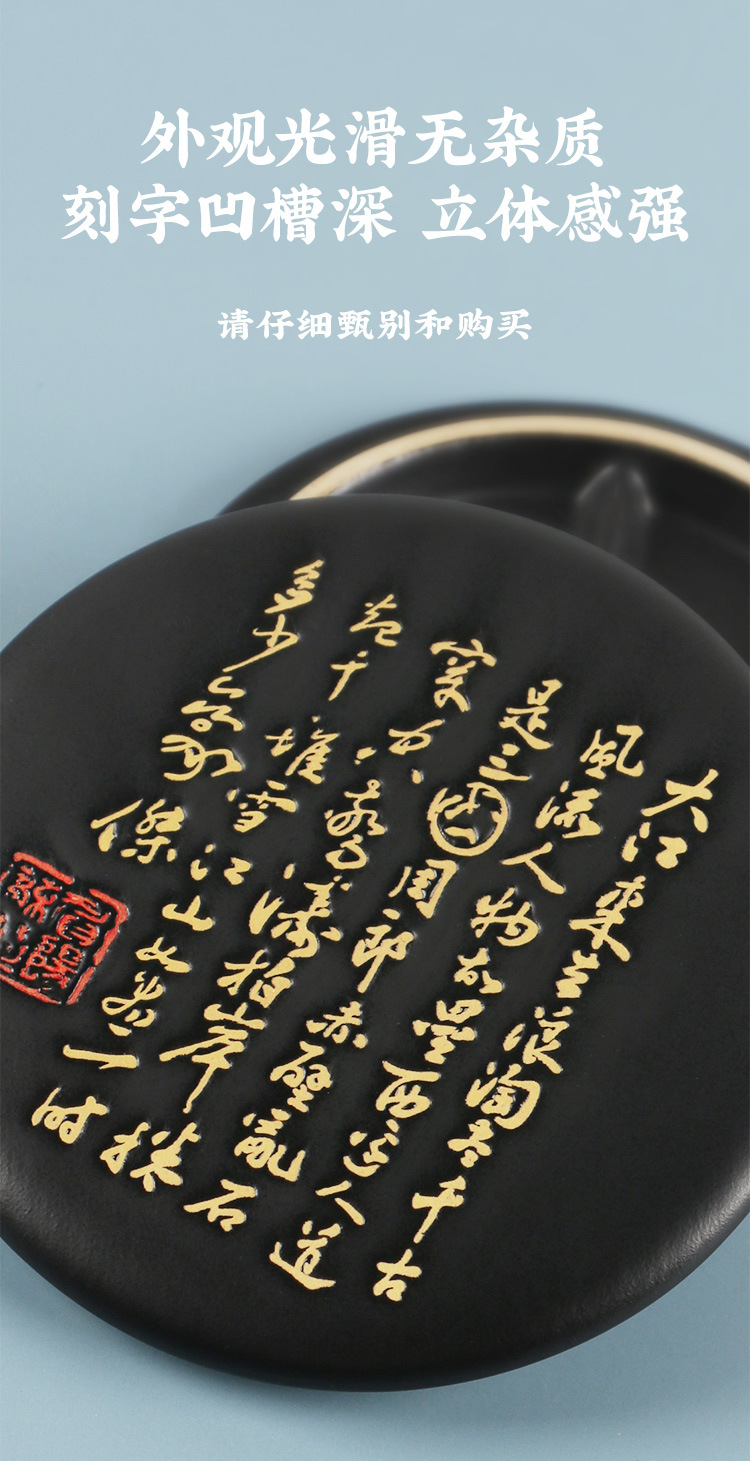 外观光滑无杂质
刻字凹槽深 立体感强
请仔细甄别和购买
大江東去浪淘尽千古
風流人物故壘西邊人道
是三国周郎赤壁亂石
穿空驚濤拍岸捲
起千堆雪江山如畫一時
多少豪傑